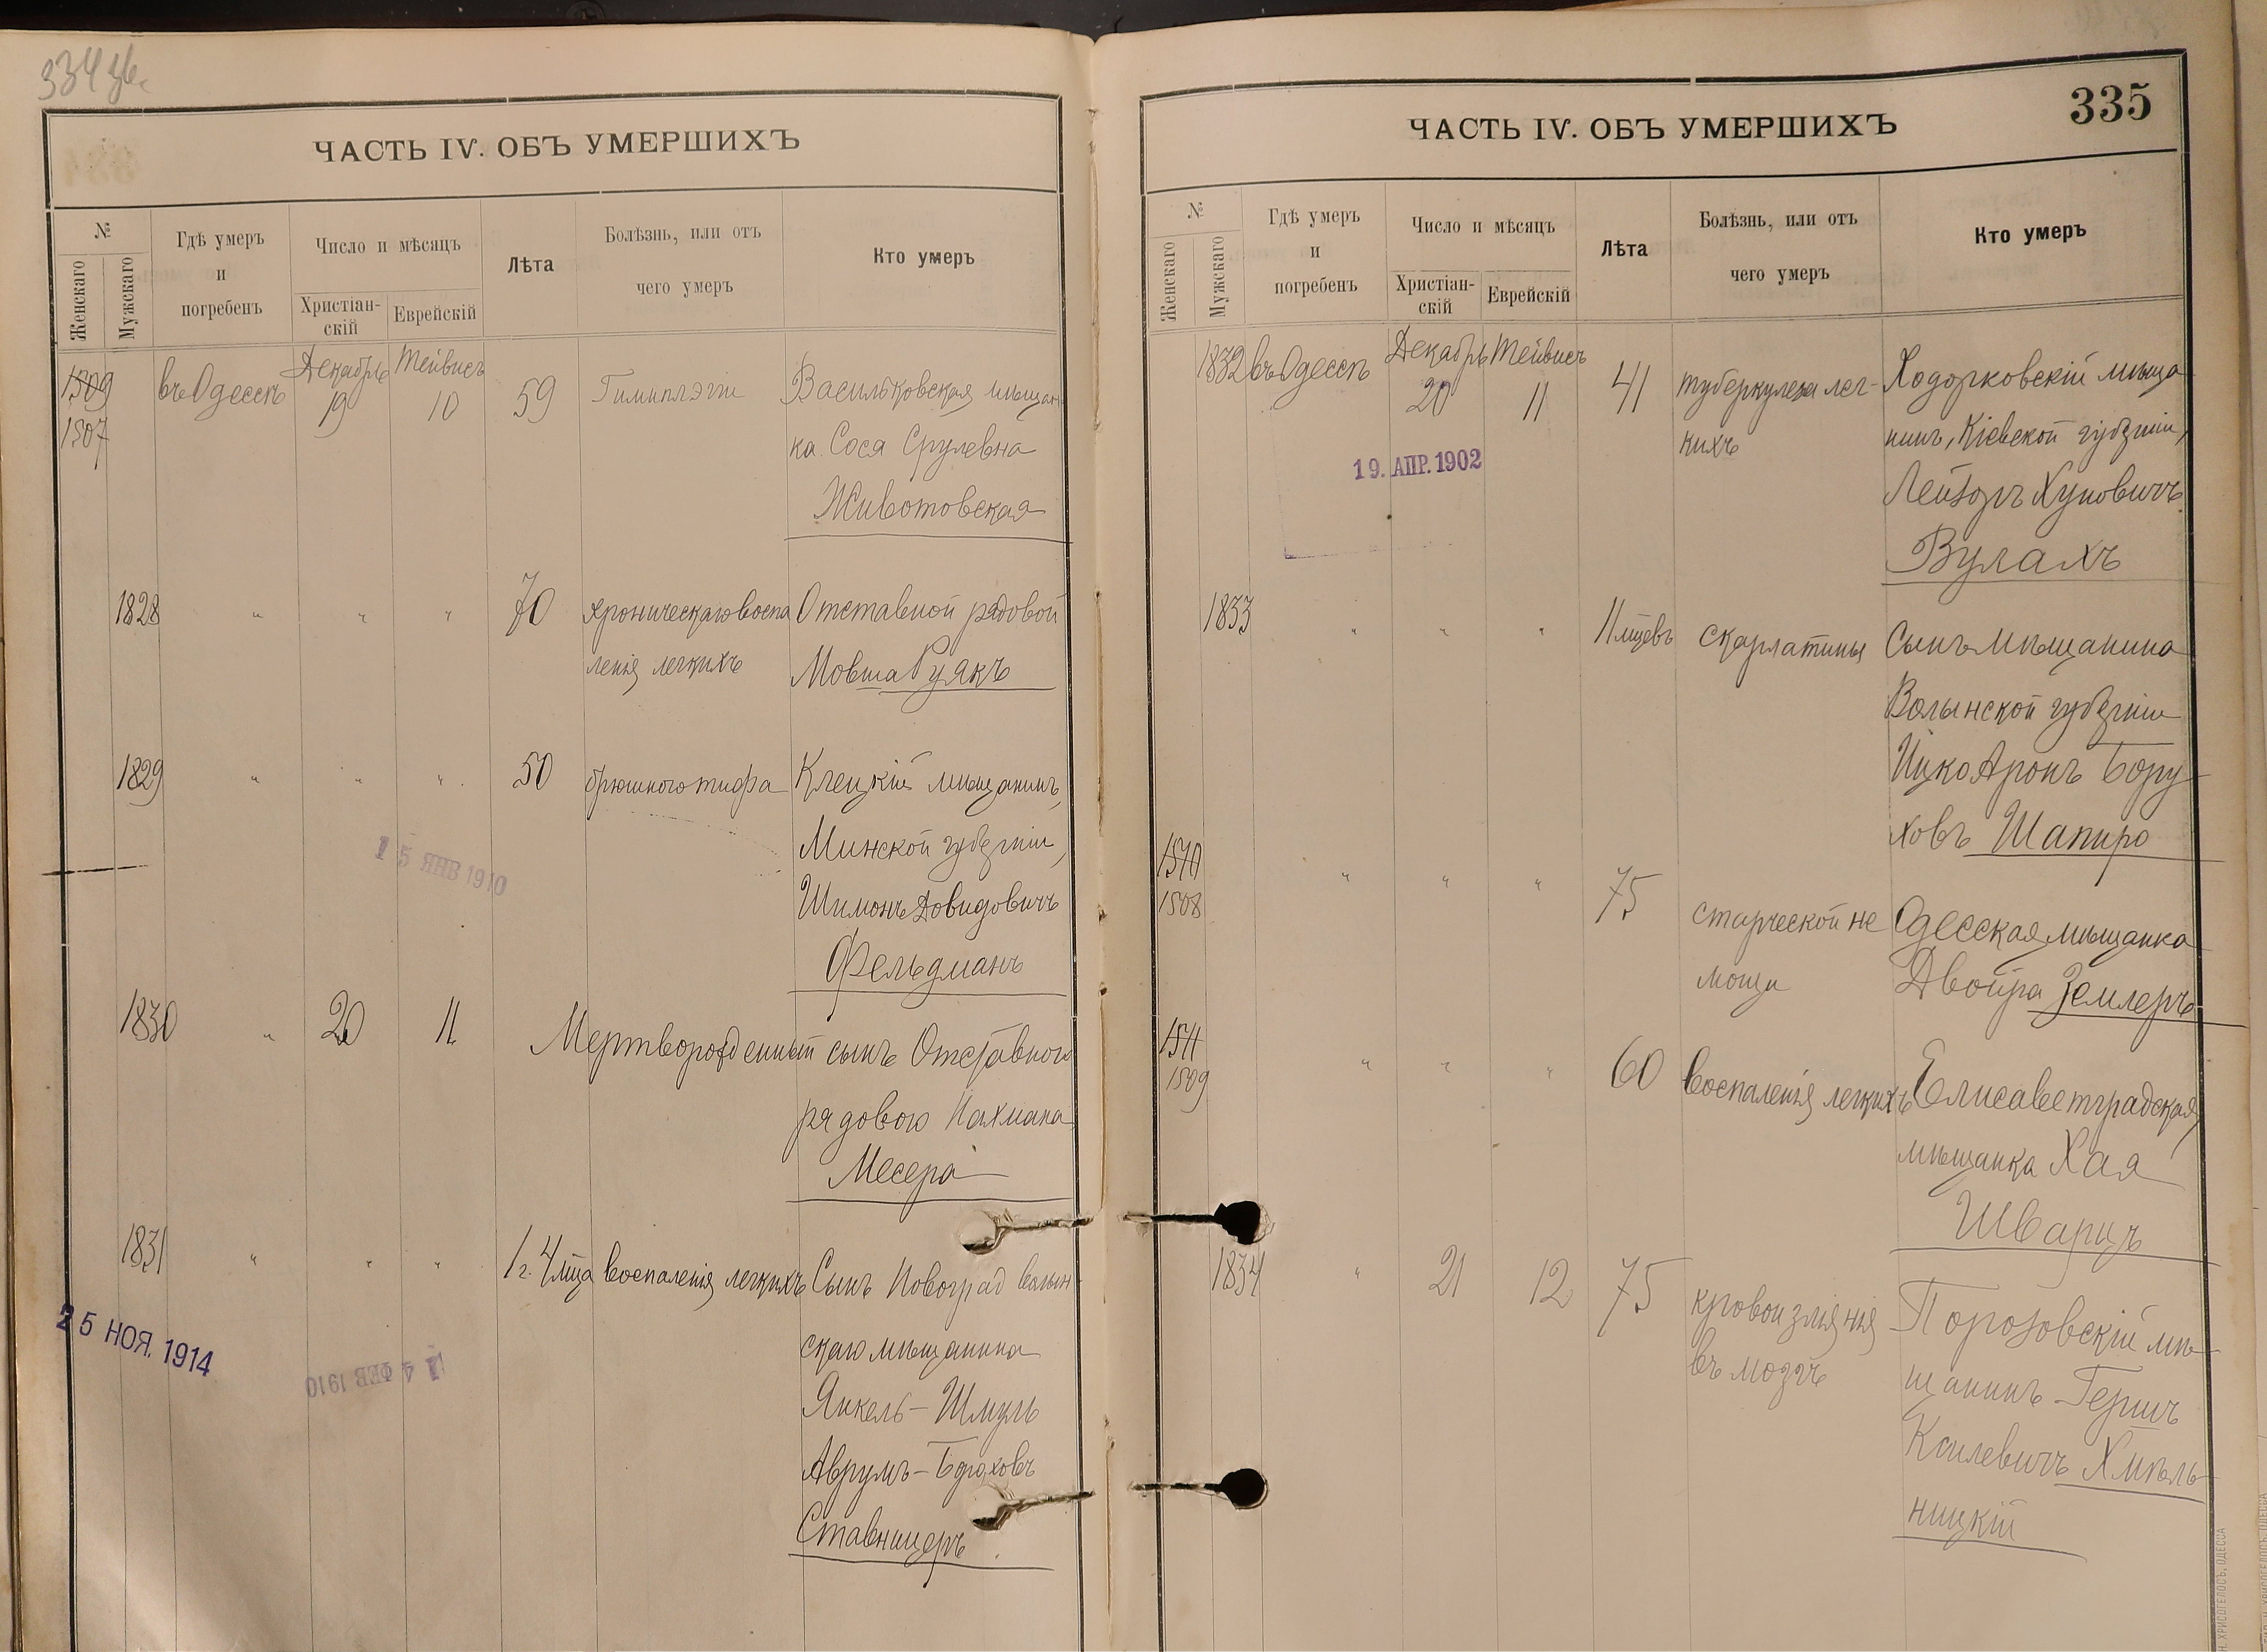 334 зв.
ЧАСТЬ IV. ОБЪ УМЕРШИХЪ
№
Женскаго
Мужскаго
Гдѣ умеръ
и
погребенъ
Число и мѣсяцъ
Христіан-
скій
Еврейскій
Лѣта
Болѣзнь, или отъ
чего умеръ
Кто умеръ
1509
1507
въ Одессѣ
Декабрь
19
Тейвисъ
10
59
Гимиплэгіи
Васильковская мѣщан
ка Сося Срулевна
Животовская
1828
" " "
70
хроническаго воспа
ленія легкихъ
Отставной рядовой
Мовша Руякъ
1829
" " "
50
брюшного тифа
Клецкій мѣщанинъ,
Минской губерніи,
Шимонъ Довидовичъ
Фельдманъ
15 ЯНВ 1910
1830
"
20
11
Мертворожденный сынъ Отставного
рядового Нахмана
Месера
1831
" " "
1 г. 4 мца
воспаленія легкихъ
Сынъ Новоград волын-
скаго мѣщанина
Янкель-Шмуль
Аврумъ-Буроховъ
Ставницеръ
25 НОЯ. 1914
14 ФЕВ 1910
335
ЧАСТЬ IV. ОБЪ УМЕРШИХЪ
№
Женскаго
Мужскаго
Гдѣ умеръ
и
погребенъ
Число и мѣсяцъ
Христіан-
скій
Еврейскій
Лѣта
Болѣзнь, или отъ
чего умеръ
Кто умеръ
1832
въ Одессѣ
Декабрь
20
Тейвисъ
11
41
туберкулеза лег-
кихъ
Ходорковскій мѣща
нинъ, Кіевской губерніи,
Лейзоръ Хуновичъ
Вулахъ
19. АПР. 1902
1833
" " "
11 мцевъ
скарлатины
Сынъ мѣщанина
Волынской губерніи
Ицко Аронъ Бору-
ховъ Шапиро
1510
1508
" " "
75
старческой не
мощи
Одесская мѣщанка
Двойра Земперъ
1511
1509
" " "
60
воспаленія легкихъ
Елисаветградская
мѣщанка Хая
Шварцъ
1834
"
21
12
75
кровоизліянія
въ мозгъ
Порозовскій мѣ-
щанинъ Гершъ
Хмѣль-
ницкій